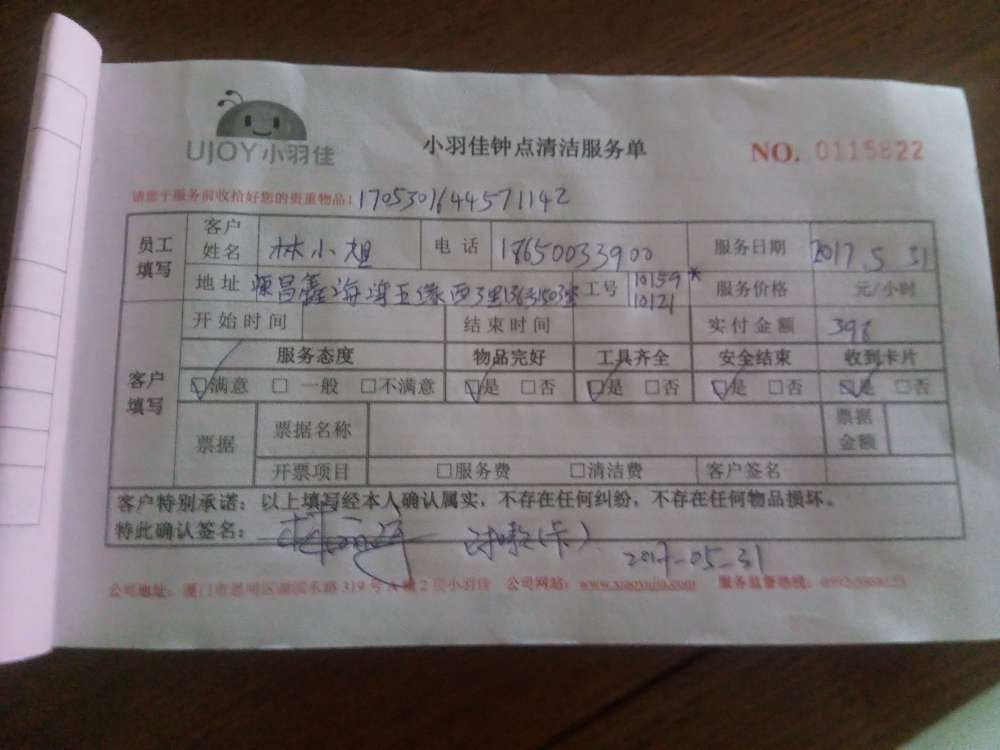 UJOY小羽佳
小羽佳钟点清洁服务单
NO. 0115822
请您于服务前收拾好您的贵重物品: 1705301644571142
员工填写 客户姓名 林小姐 电话 18650033900 服务日期 2017.5.31
地址 海 五缘西 工号 10159* 10121 服务价格 元/小时
客户填写 开始时间 结束时间 实付金额 398
服务态度 物品完好 工具齐全 安全结束 收到卡片
☑满意 □一般 □不满意 ☑是 □否 ☑是 □否 ☑是 □否 ☑是 □否
票据 票据名称 票据金额
开票项目 □服务费 □清洁费 客户签名
客户特别承诺：以上填写经本人确认属实，不存在任何纠纷，不存在任何物品损坏。
特此确认签名： (卡) 2017-05-31
公司地址：厦门市思明区湖滨东路319号A幢2层小羽佳 公司网站：www.xiaoyujia.com 服务监督热线：